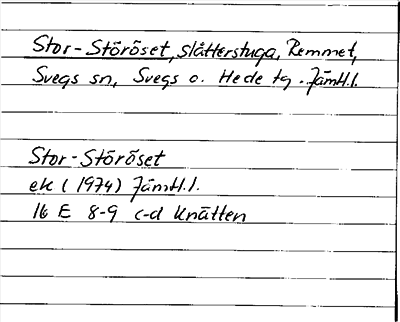 Stor-Störöset, slåtterstuga, Remmet,
Svegs sn, Svegs o. Hede tg. Jämtl.l.
Stor-Störöset
ek (1974) Jämtl.l.
16 E 8-9 c-d Knätten